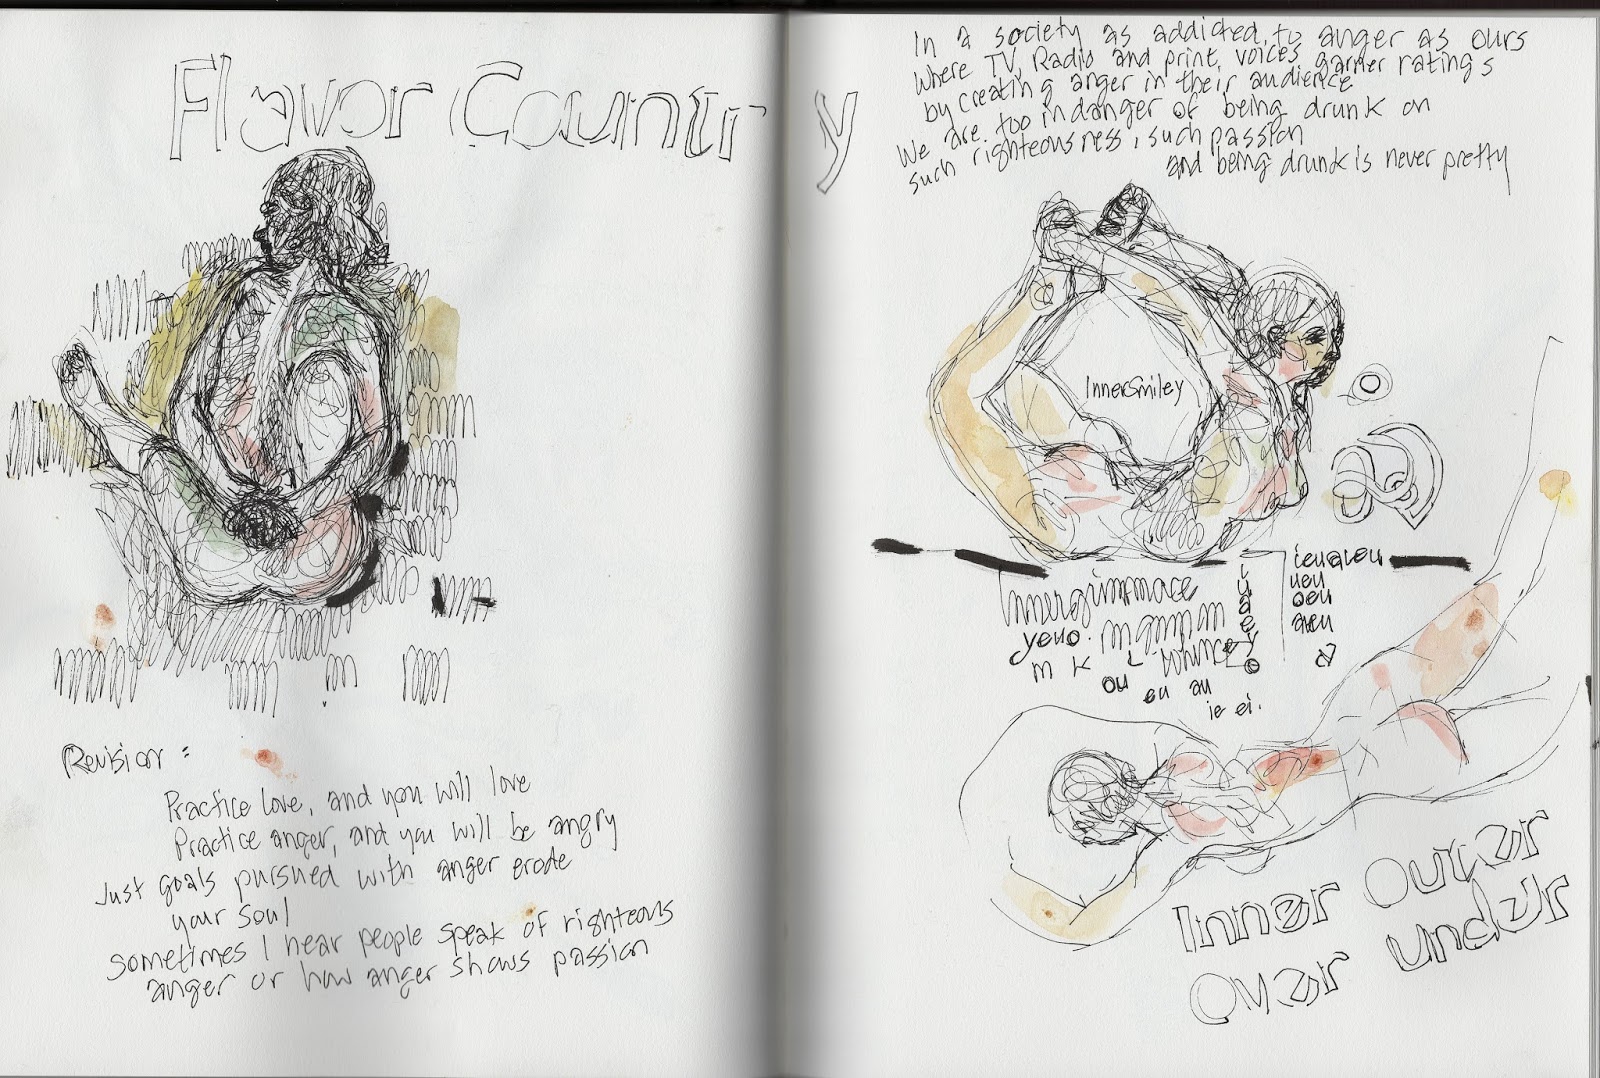 Flavor Country
Revision:
Practice love, and you will love
Practice anger, and you will be angry
Just goals pursued with anger erode
your soul
sometimes I hear people speak of righteous
anger or how anger shows passion
In a society as addicted to anger as ours
Where TV, Radio and print, voices garner ratings
by creating anger in their audience
We are too in danger of being drunk on
such righteousness, such passion
and being drunk is never pretty
InnerSmiley
m K
ou eu au
ie ei.
Inner Outer
Over under